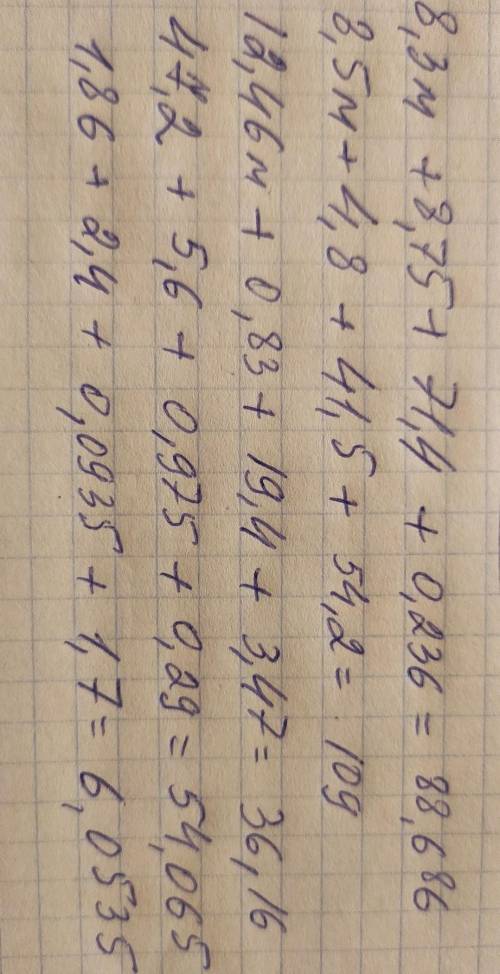 8,3м + 8,75 + 71,4 + 0,236 = 88,686
8,5м + 4,8 + 41,5 + 54,2 = 109
12,46м + 0,83 + 19,4 + 3,47 = 36,16
47,2 + 5,6 + 0,975 + 0,29 = 54,065
1,86 + 2,4 + 0,0935 + 1,7 = 6,0535